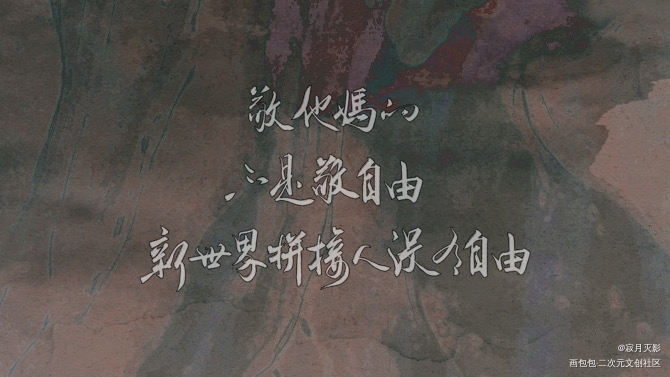 敬他媽的
不是敬自由
新世界拼接人没有自由
@寂月灭影
画包包·二次元文创社区